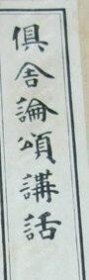 俱舎論頌講話